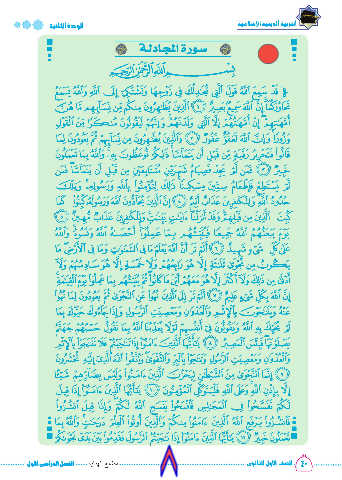 التربية الدينية الإسلامية
الوحدة الثانية
سورة المجادلة
بسم الله الرحمن الرحيم
قد سمع الله قول التي تجادلك في زوجها وتشتكي إلى الله والله يسمع
تحاوركما إن الله سميع بصير ١ الذين يظاهرون منكم من نسائهم ما هن
أمهاتهم إن أمهاتهم إلا اللائي ولدنهم وإنهم ليقولون منكرا من القول
وزورا وإن الله لعفو غفور ٢ والذين يظاهرون من نسائهم ثم يعودون لما
قالوا فتحرير رقبة من قبل أن يتماسا ذلكم توعظون به والله بما تعملون
خبير ٣ فمن لم يجد فصيام شهرين متتابعين من قبل أن يتماسا فمن
لم يستطع فإطعام ستين مسكينا ذلك لتؤمنوا بالله ورسوله وتلك
حدود الله وللكافرين عذاب أليم ٤ إن الذين يحادون الله ورسوله كبتوا كما
كبت الذين من قبلهم وقد أنزلنا آيات بينات وللكافرين عذاب مهين ٥
يوم يبعثهم الله جميعا فينبئهم بما عملوا أحصاه الله ونسوه والله
على كل شيء شهيد ٦ ألم تر أن الله يعلم ما في السماوات وما في الأرض ما
يكون من نجوى ثلاثة إلا هو رابعهم ولا خمسة إلا هو سادسهم ولا
أدنى من ذلك ولا أكثر إلا هو معهم أين ما كانوا ثم ينبئهم بما عملوا يوم القيامة
إن الله بكل شيء عليم ٧ ألم تر إلى الذين نهوا عن النجوى ثم يعودون لما نهوا
عنه ويتناجون بالإثم والعدوان ومعصيت الرسول وإذا جاءوك حيوك بما
لم يحيك به الله ويقولون في أنفسهم لولا يعذبنا الله بما نقول حسبهم جهنم
يصلونها فبئس المصير ٨ يا أيها الذين آمنوا إذا تناجيتم فلا تتناجوا بالإثم
والعدوان ومعصيت الرسول وتناجوا بالبر والتقوى واتقوا الله الذي إليه تحشرون
٩ إنما النجوى من الشيطان ليحزن الذين آمنوا وليس بضارهم شيئا
إلا بإذن الله وعلى الله فليتوكل المؤمنون ١٠ يا أيها الذين آمنوا إذا قيل
لكم تفسحوا في المجالس فافسحوا يفسح الله لكم وإذا قيل انشزوا
فانشزوا يرفع الله الذين آمنوا منكم والذين أوتوا العلم درجات والله بما
تعملون خبير ١١ يا أيها الذين آمنوا إذا ناجيتم الرسول فقدموا بين يدي نجواكم
الصف الأول الثانوي
الفصل الدراسي الأول